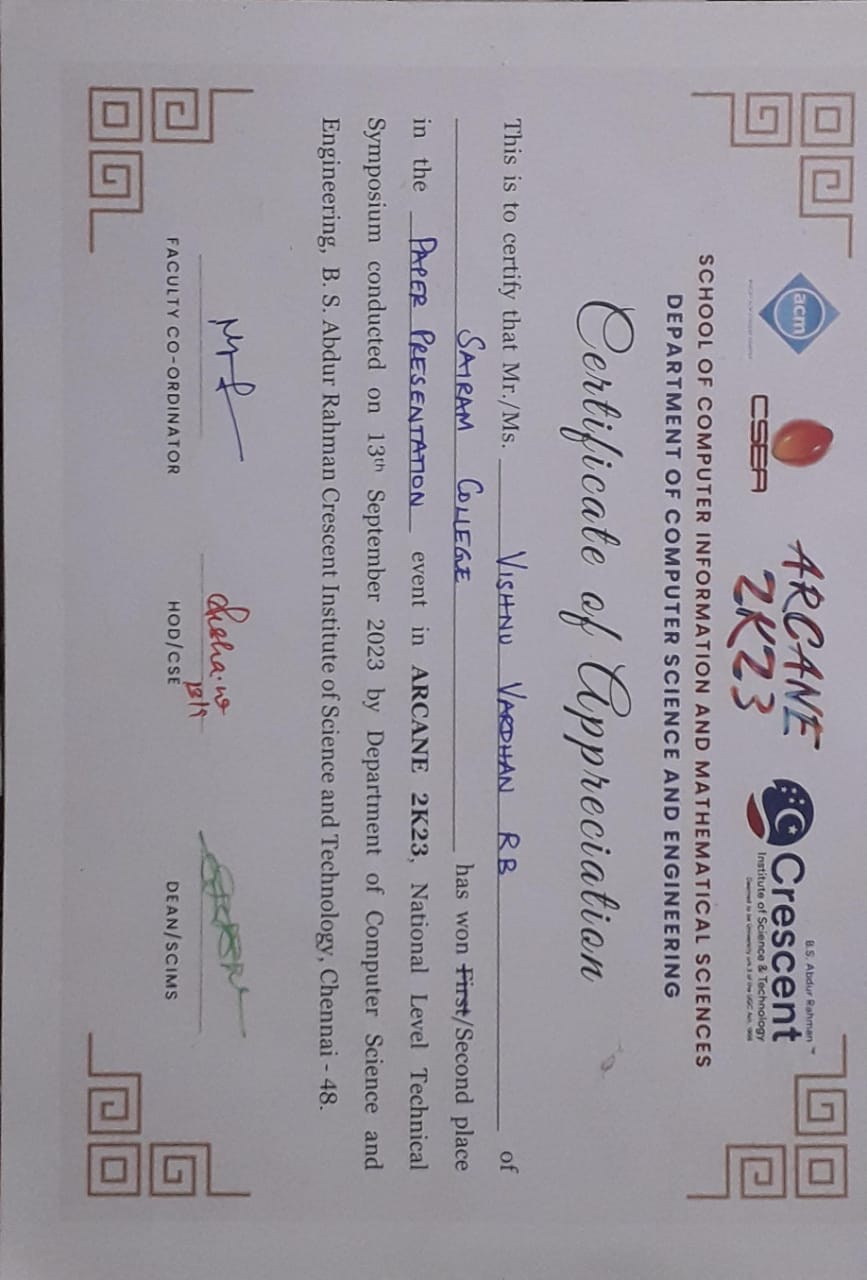 acm
CSEA
ARCANE
2K23
B.S. Abdur Rahman
Crescent
Institute of Science & Technology
Deemed to be University u/s 3 of the UGC Act, 1956
SCHOOL OF COMPUTER INFORMATION AND MATHEMATICAL SCIENCES
DEPARTMENT OF COMPUTER SCIENCE AND ENGINEERING
Certificate of Appreciation
This is to certify that Mr./Ms. VISHNU VARDHAN RB of
SAIRAM COLLEGE has won First/Second place
in the PAPER PRESENTATION event in ARCANE 2K23, National Level Technical
Symposium conducted on 13th September 2023 by Department of Computer Science and
Engineering, B. S. Abdur Rahman Crescent Institute of Science and Technology, Chennai - 48.
13/9
FACULTY CO-ORDINATOR HOD/CSE DEAN/SCIMS